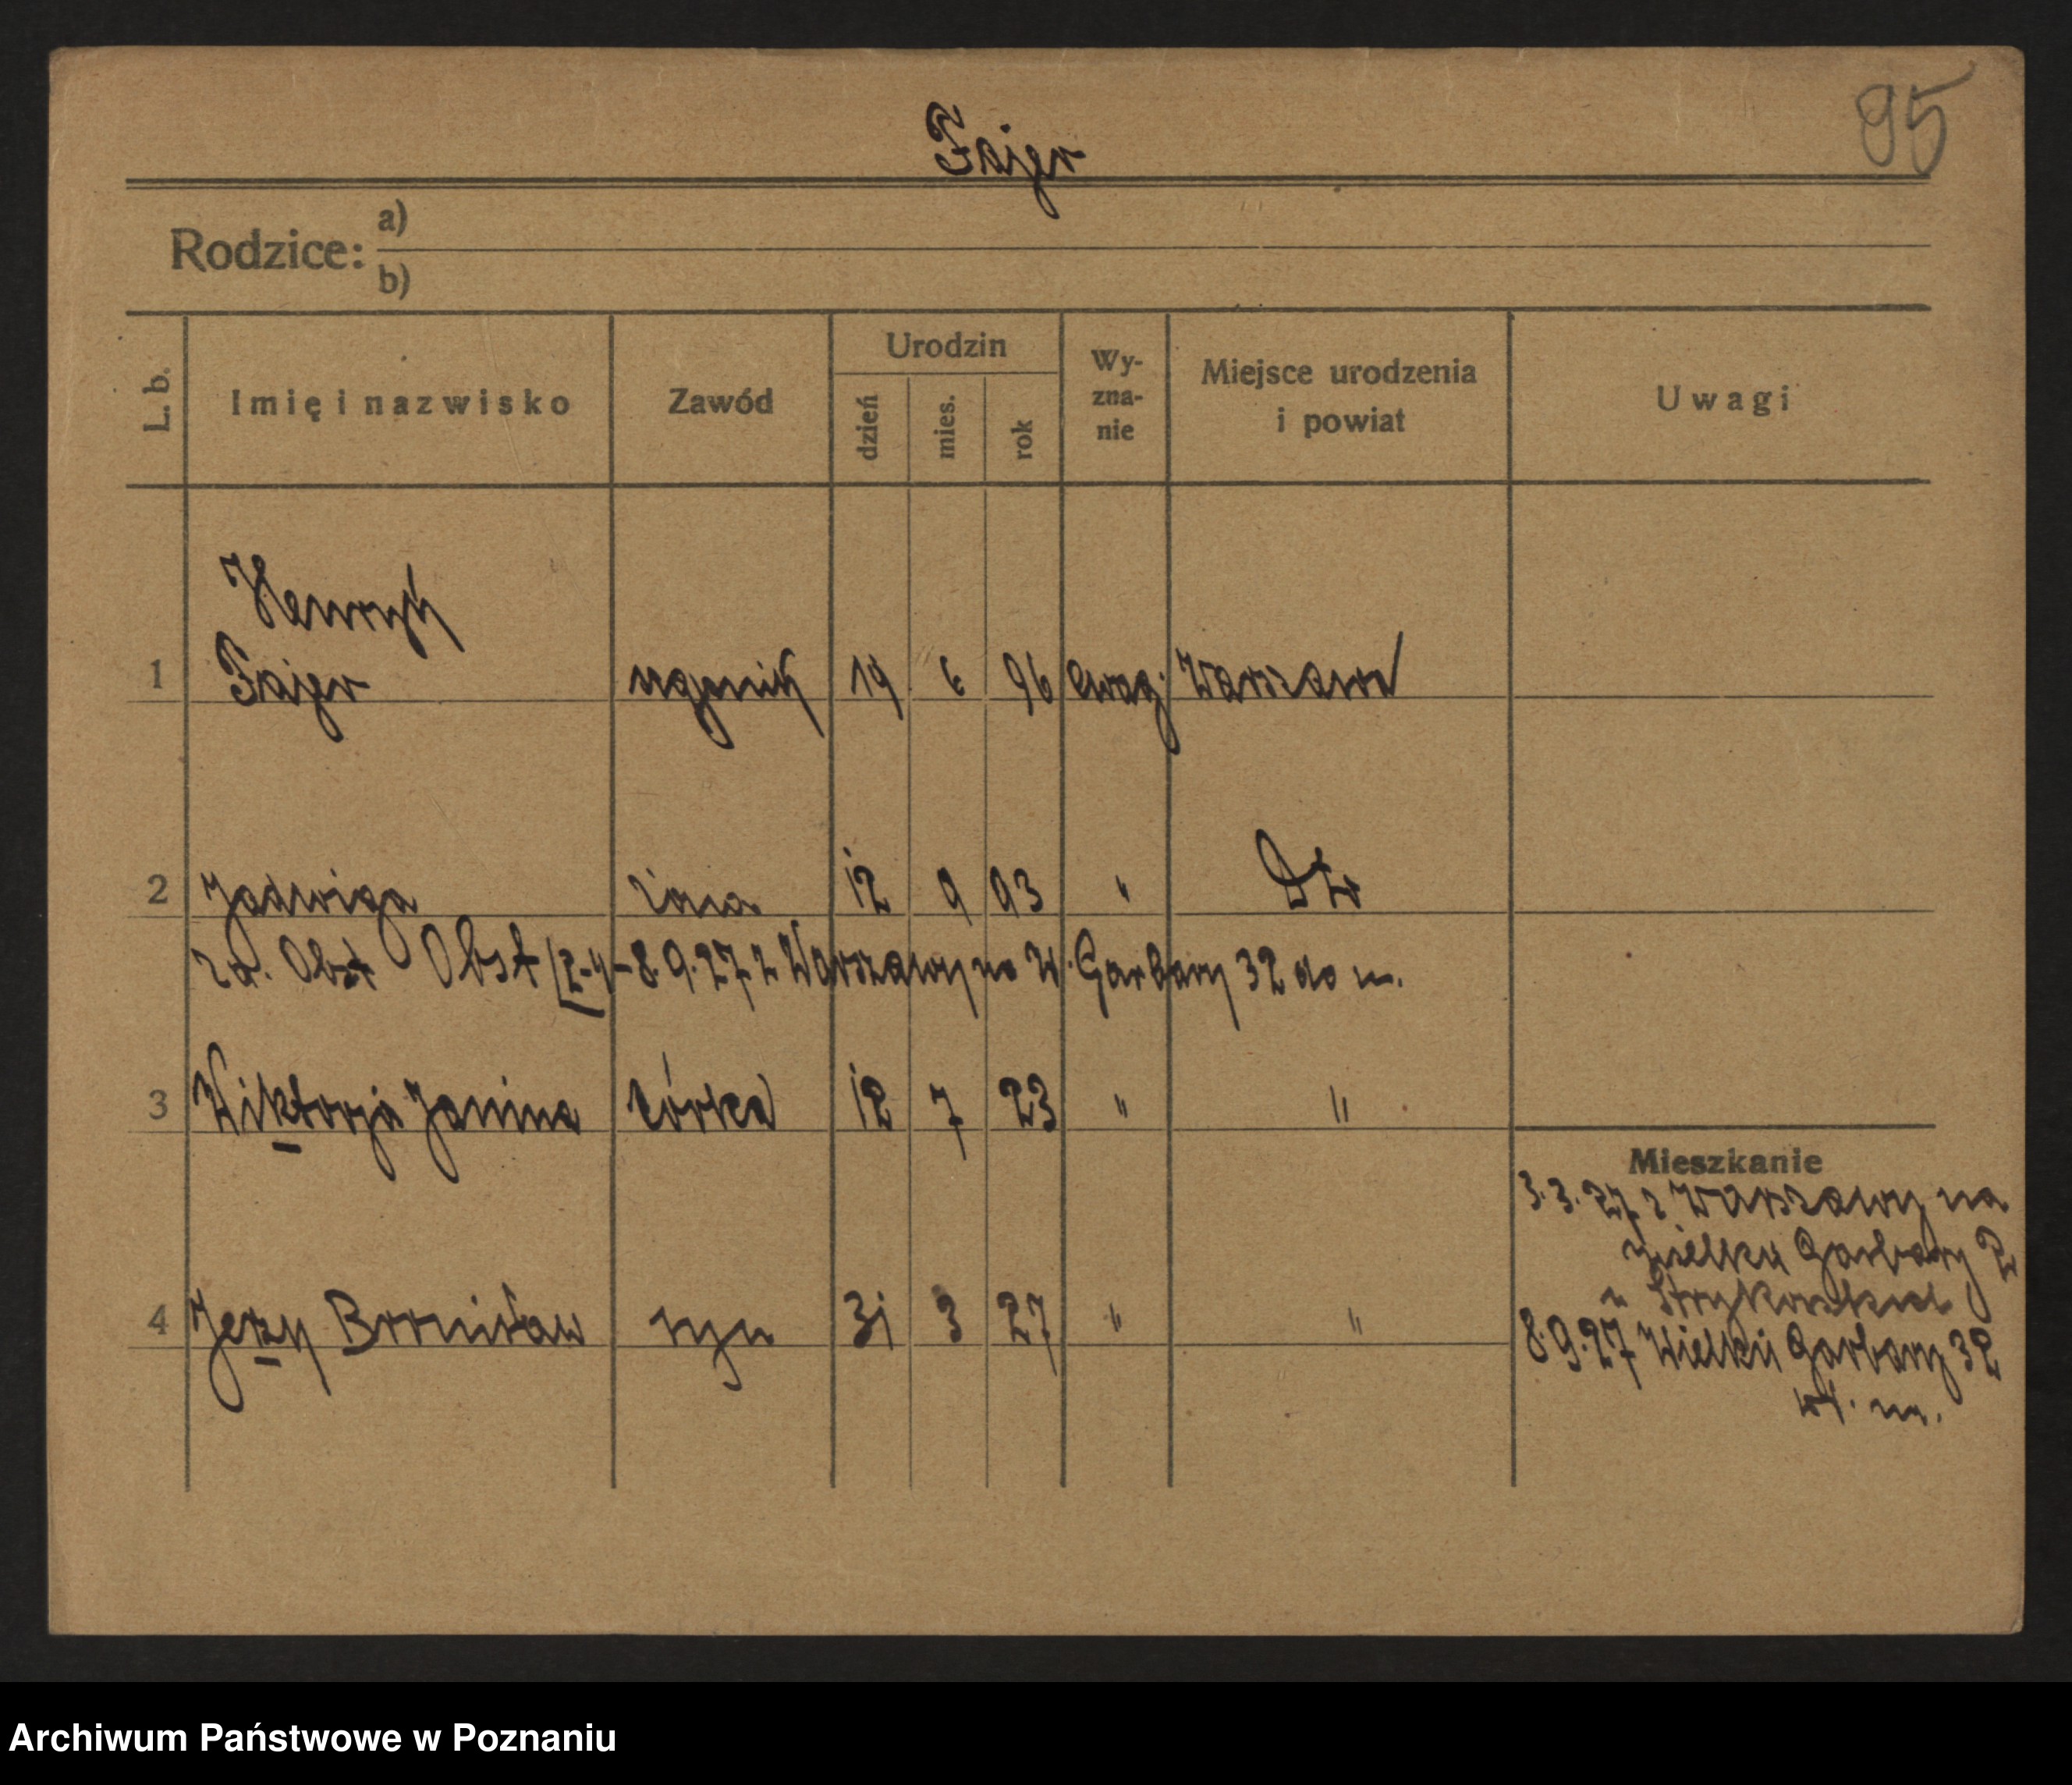 95
Fajer
Rodzice: a)
b)
L. b. Imię i nazwisko Zawód Urodzin dzień mies. rok Wy-zna-nie Miejsce urodzenia i powiat Uwagi
Henryk
1 Fajer 19 6 96 ewag. Warszawa
2 Jadwiga żona 12 9 93 "
za. Obst Obst (2-4-8.9.27 z Warszawy na W. Garbary 32 do m.
3 Wiktorja Janina córka 12 7 23 " "
Mieszkanie
3.3.27 z Warszawy na
Wielkie Garbary
4 Jerzy Bronisław syn 31 3 27 " "
8.9.27 Wielkie Garbary 32
wł. m.
Archiwum Państwowe w Poznaniu